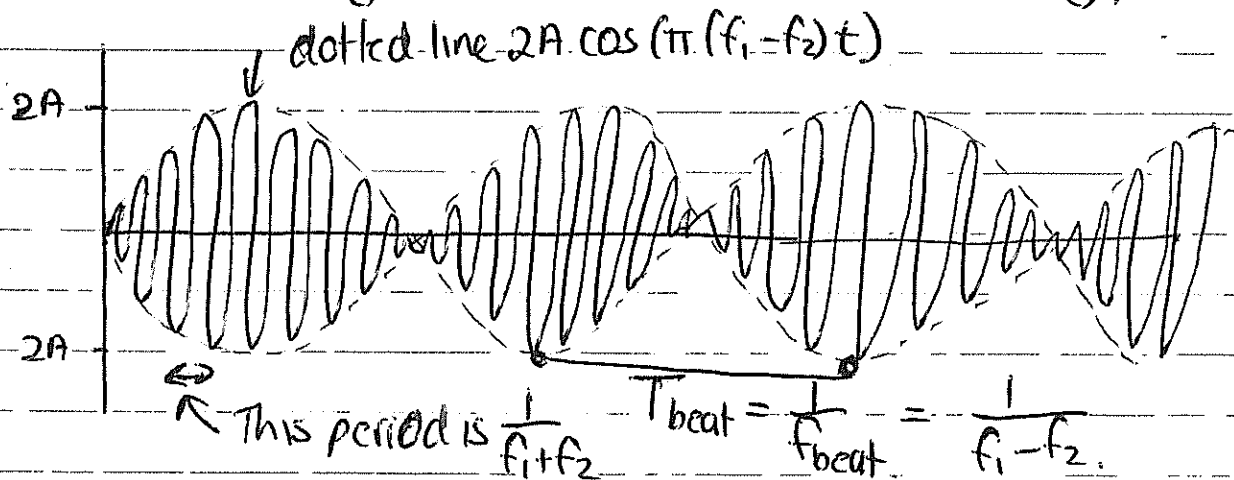 dotted line 2A cos (π (f₁-f₂) t)
2A
2A
This period is 1/(f₁+f₂)
T_beat = 1/f_beat = 1/(f₁-f₂).